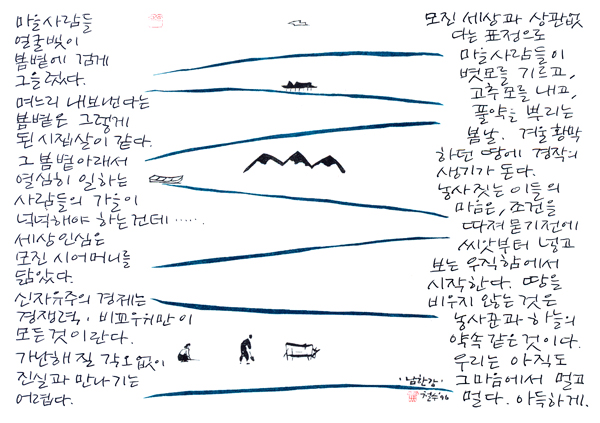 마을사람들
얼굴빛이
봄볕에 검게
그을렸다.
며느리 내보낸다는
봄볕은 그렇게
된 시집살이 같다.
그 봄볕아래서
열심히 일하는
사람들의 가을이
넉넉해야 하는건데 ‥‥‥
세상인심은
모진 시어머니를
닮았다.
신자유주의 경제는
경쟁력 · 비교우위만이
모든것이란다.
가난해질 각오없이
진실과 만나기는
어렵다.
모진 세상과 상관없
다는 표정으로
마을사람들이
볏모를 기르고,
고추모를 내고,
풀약을 뿌리는
봄날. 겨울황막
하던 땅에 경작의
생기가 돈다.
농사짓는 이들의
마음은, 조건을
따져묻기전에
씨앗부터 넣고
보는 우직함에서
시작한다. 땅을
비우지 않는것은
농사꾼과 하늘의
약속같은 것이다.
우리는 아직도
그마음에서 멀고
멀다. 아득하게.
· 남한강 ·
철수 '96